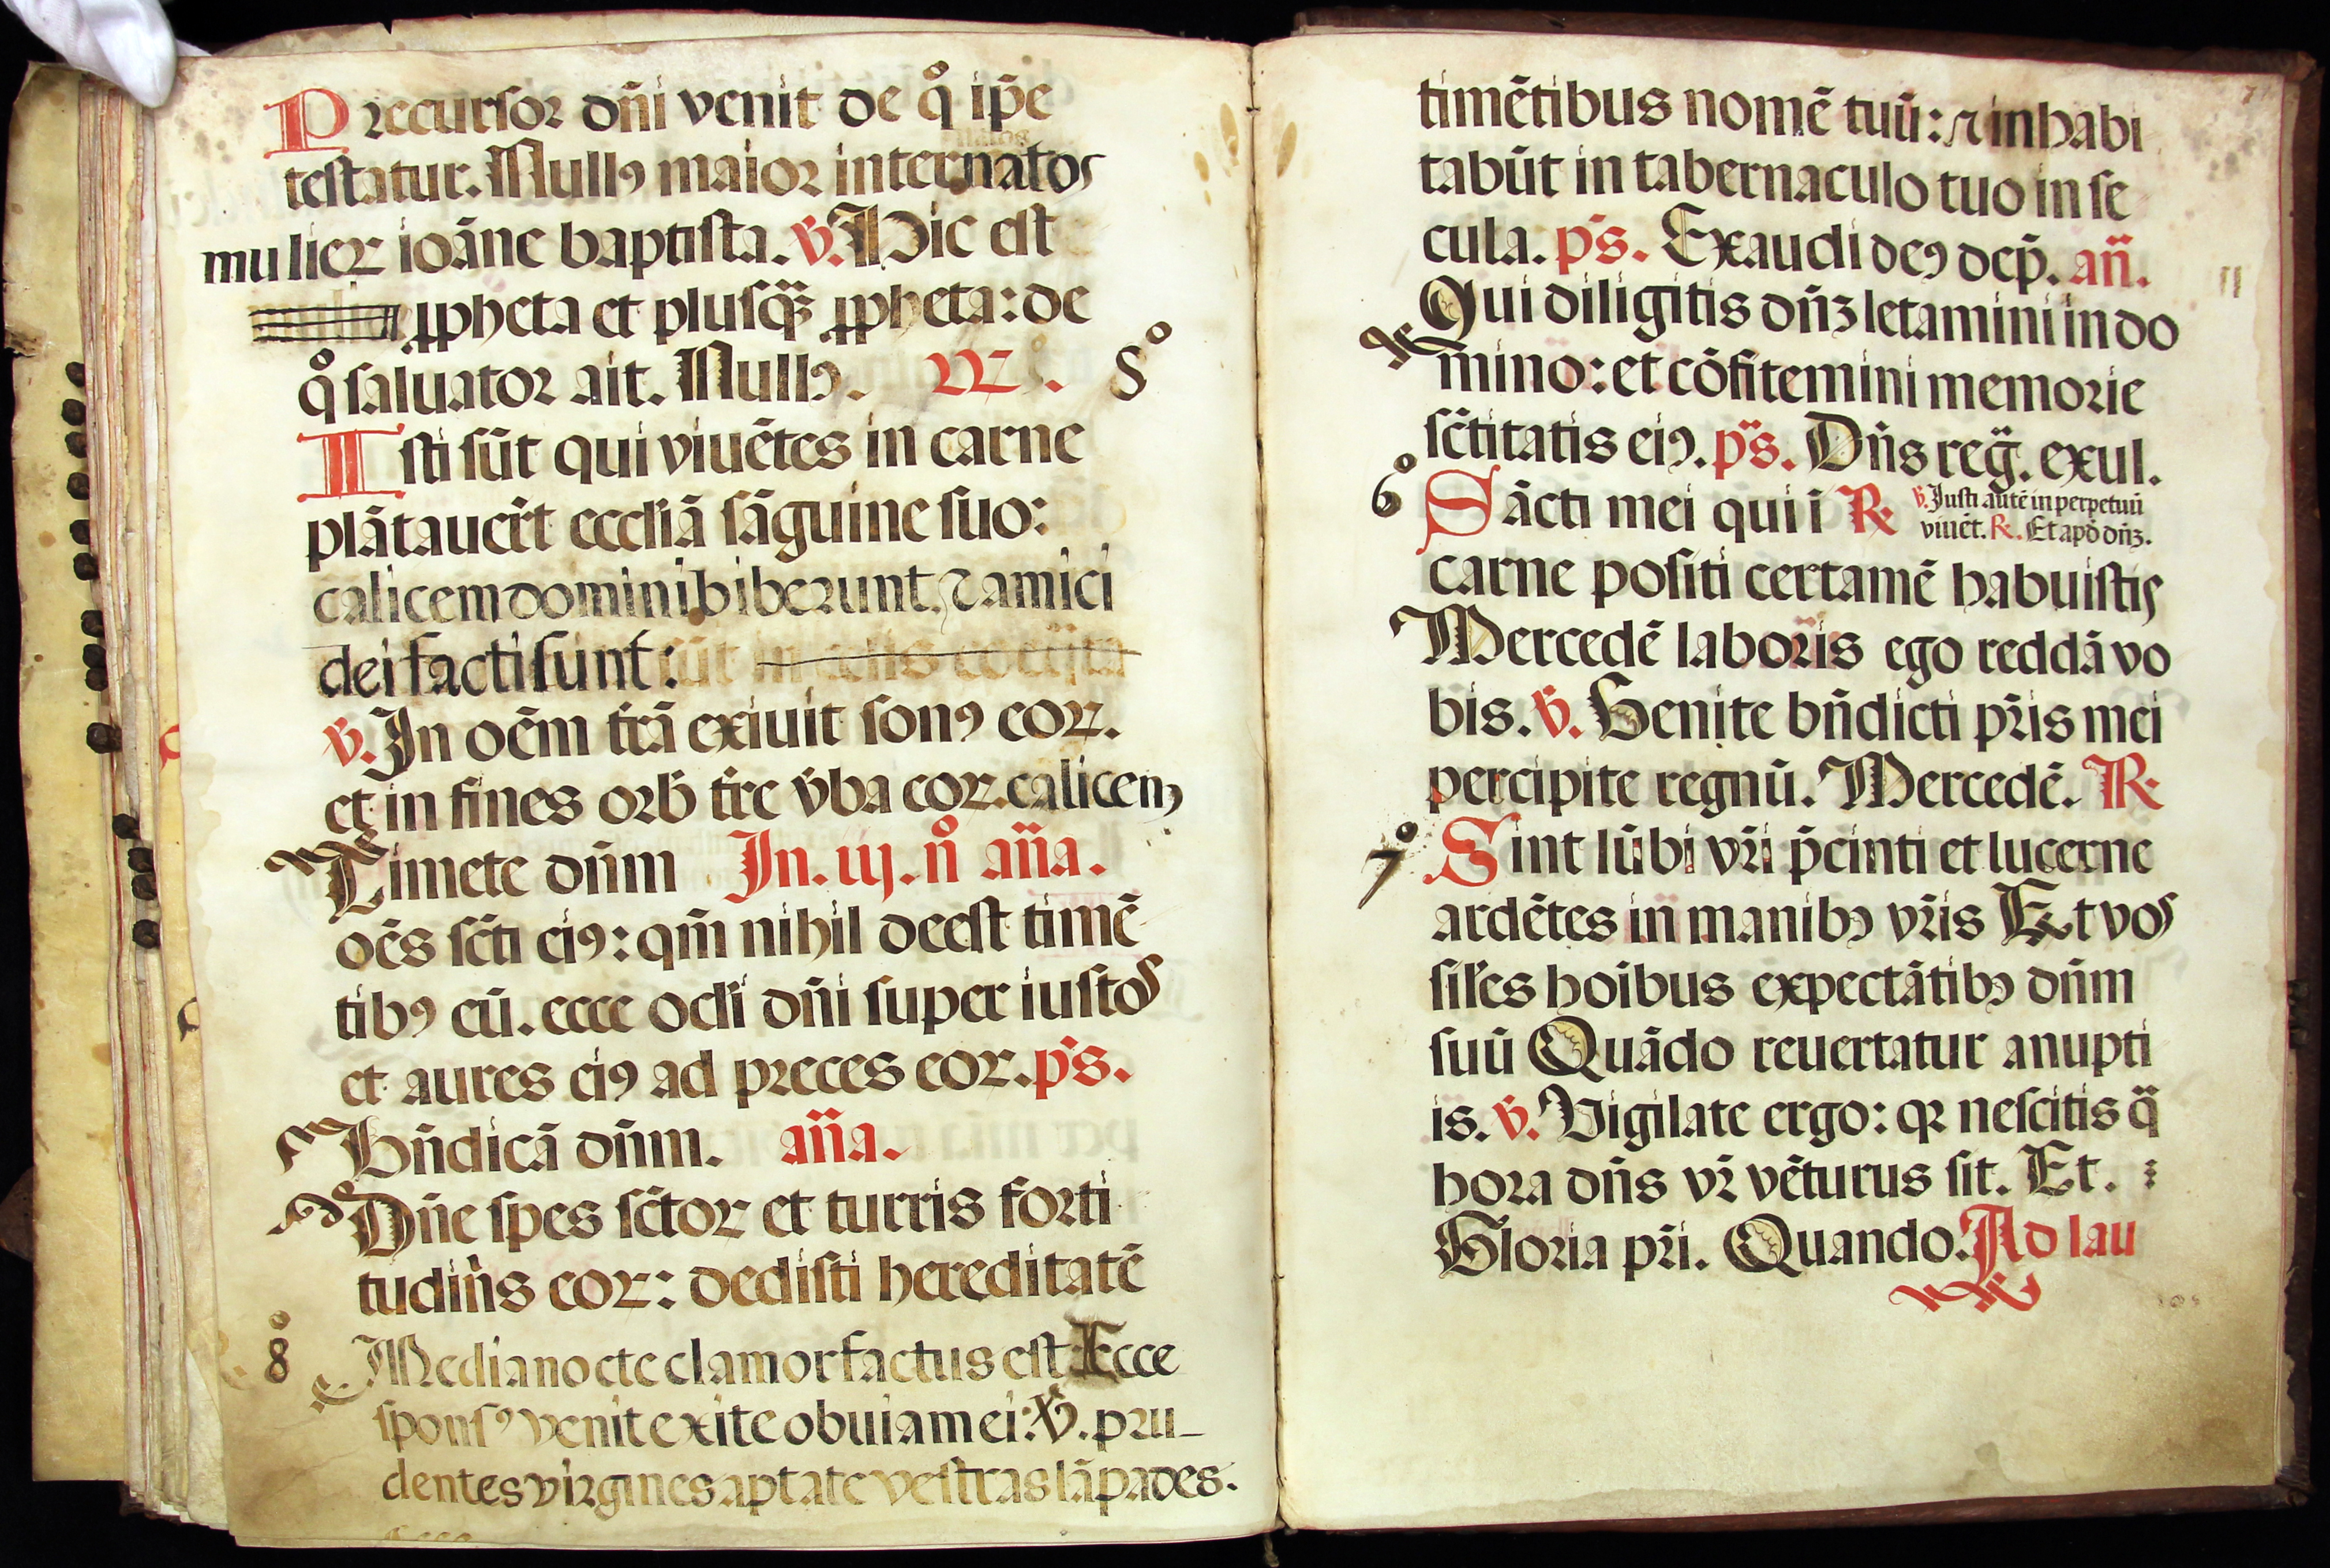 Precursor dñi venit de q̊ ip̃e
testatur. Nullꝰ maior inter natos
mulierꝝ ioãne baptista. ꝟ. Hic est
ꝓpheta et plusq̃ꝫ ꝓpheta: de
q̊ saluator ait. Nullꝰ. ꝶ. 5º
Isti sũt qui viuẽtes in carne
plãtauer̃t ecclĩã sãguine suo:
calicem domini biberunt, ⁊ amici
dei facti sunt: sũt in celis
ꝟ. In oẽm tr̃ã exiuit sonꝰ eoꝝ.
et in fines orb̃ tr̃e v̾ba eoꝝ. calicem
Timete dñm In. iij. nº añã.
oẽs sc̃ti eiꝰ: qm̃ nihil deest timẽ
tibꝰ eũ. ecce ocl̃i dñi super iustos
et aures eiꝰ ad preces eoꝝ. p̃s.
Bñdicã dñm. añã.
Dñe spes sc̃toꝝ et turris forti
tudiñs eoꝝ: dedisti hereditatẽ
8º Media nocte clamor factus est Ecce
sponsꝰ venit exite obuiam ei: ꝟ. pru-
dentes virgines aptate vestras lãpades.
timẽtibus nomẽ tuũ: ⁊ inhabi
tabũt in tabernaculo tuo in se
cula. p̃s. Exaudi deꝰ dep̃. añ.
Qui diligitis dñꝫ letamini in do
mino: et cõfitemini memorie
sc̃titatis eiꝰ. p̃s. Dñs reg̃. exul.
6º Sãcti mei qui ĩ ℟ ꝟ. Justi autẽ in perpetuũ
viuẽt. ℟. Et apð dñꝫ.
carne positi certamẽ habuistis
Mercedẽ laboris ego reddã vo
bis. ꝟ. Venite bñdicti pr̃is mei
percipite regnũ. Mercedẽ. ℟
7º Sint lũbi vr̃i p̃cinti et lucerne
ardẽtes in manibꝰ vr̃is Et vos
sil̃es hoĩbus expectãtibꝰ dñm
suũ Quãdo reuertatur a nupti
is. ꝟ. Vigilate ergo: qꝛ nescitis q̃
hora dñs vr̃ vẽturus sit. Et.
Gloria pr̃i. Quando. Ad lau